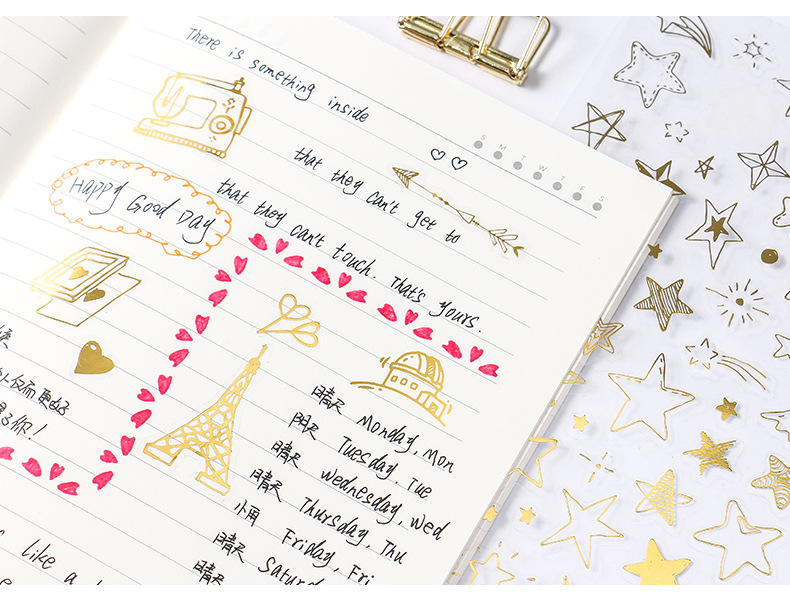 There is something inside
S M T W T F S
that they can't get to
Happy Good Day
that they can't touch. That's yours.
你!
晴天 Monday, Mon
阴天 Tuesday, Tue
晴天 Wednesday, Wed
晴天 Thursday, Thu
小雨 Friday, Fri
晴天
晴天
like a